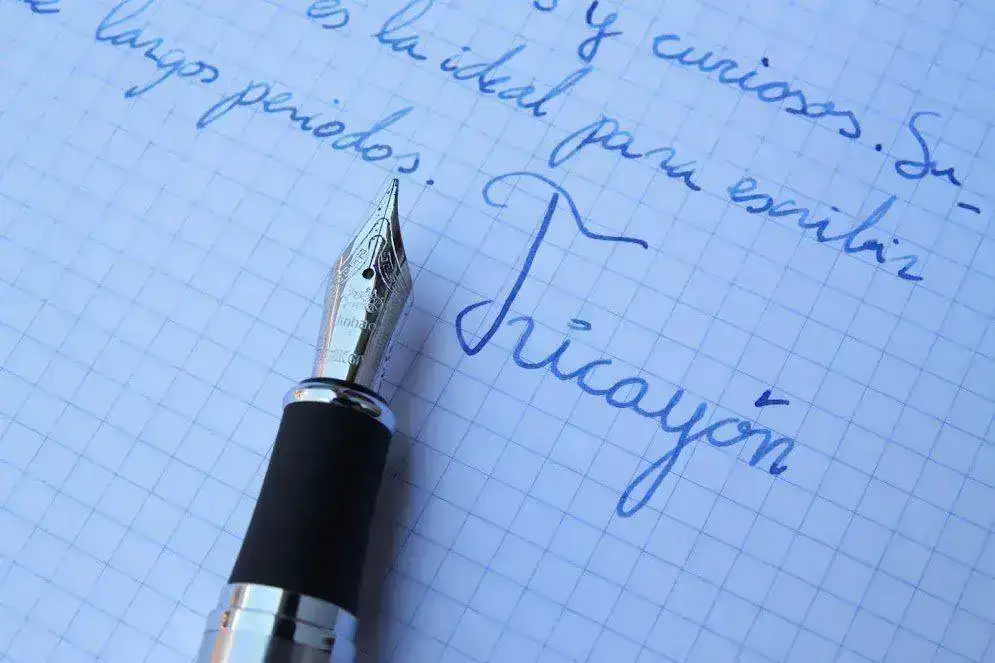 y curiosos. Su-
es la ideal para escribir
largos periodos.
Tricayón
Jinhao